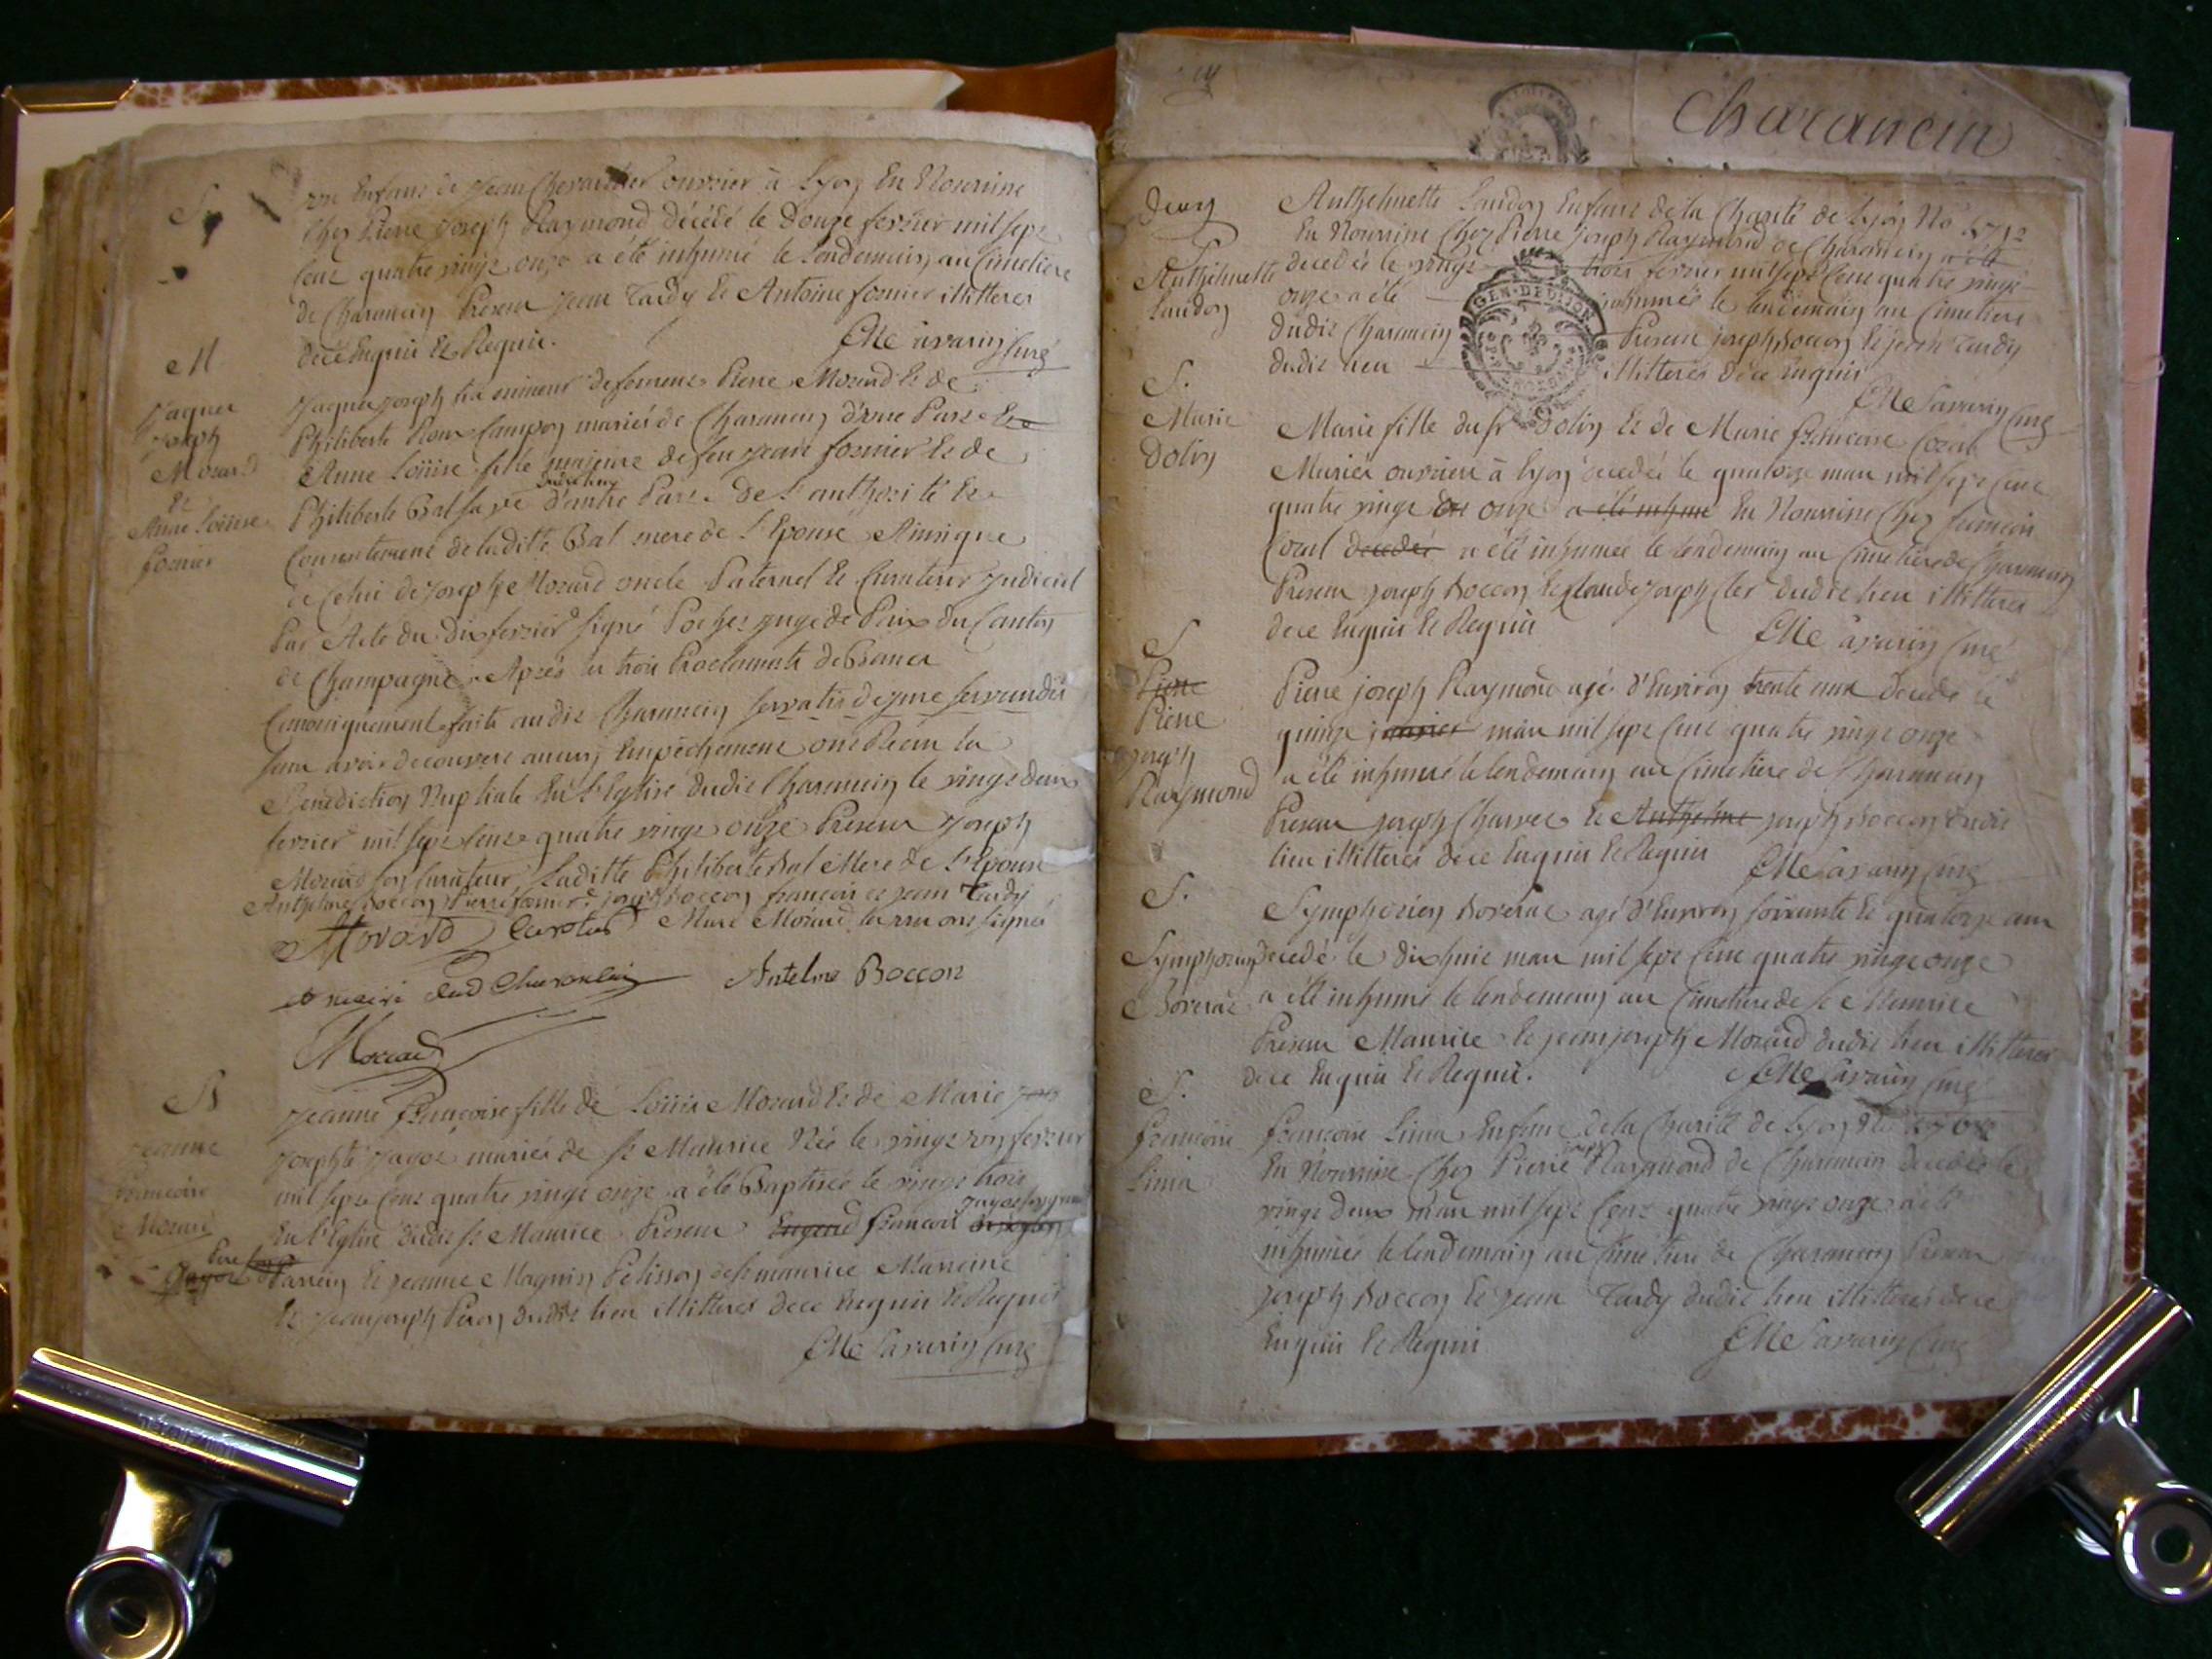 S.
un Enfant de Jean Chevautier ouvrier à Lyon En Nourrice
Chez Pierre Joseph Raymond Décédé le Douze fevrier mil sept
Cent quatre vingt onze a été inhumé le Lendemain au Cimetière
de Charancin Present Jean Tardy Et Antoine fornier illitteres
de ce Enquis Et Requis.
M
Jaques
Joseph
Morard
Et
Anne Loüise
fornier
Jaques Joseph fils mineur de feu Pierre Morard Et de
Philiberte mariés de Charancin d'une Part
Anne Loüise fille mineure de feu Jean fornier Et de
Philiberte Bal d'autre Part de L'authorité Et
Consentement de laditte Bal mere de L'Epouse Ainsi que
de Celui de Joseph Morard oncle Paternel Et Curateur Judiciel
Par Acte du Dix fevrier signé Juge de Paix du Canton
de Champagne Après les trois Proclamats de Bancs
Canoniquement faits audit Charancin servatis de jure servandis
sans avoir decouvert aucun Empêchement ont Reçu la
Benediction Nuptiale En L'Eglise dudit Charancin le vingt deux
fevrier mil sept Cent quatre vingt onze Present Joseph
Morard son Curateur, Laditte Philiberte Bal Mere de L'Epouse
Anthelme Boccon Pierre fornier Joseph Boccon françois et Jean Tardy
Morard Curateur Marc Morard les uns ont signés
Maire dud Charancin Antelme Boccon
Morard
Jeanne
francoise
Morard
Jeanne françoise fille de Loüis Morard Et de Marie
Josephte Jayoz mariés de St Maurice Née le vingt un fevrier
mil sept Cent quatre vingt onze a été Baptisée le vingt trois
En L'Eglise dudit St Maurice Present françois
Parrein Et Jeanne Magnin Pelisson de St maurice Marreine
Et Jean Joseph Peron dudit lieu illitteres de ce Enquis Et Requis
Savarin Curé
Charancin
Deux
S.
Anthelmette
Landon
Anthelmette Landon Enfant de la Charité de Lyon No
En Nourrice Chez Pierre Joseph Raymond de Charancin
decedée le vingt trois fevrier mil sept Cent quatre vingt
onze a été inhumée le lendemain au Cimetiere
dudit Charancin Present Joseph Boccon Et Jean Tardy
dudit lieu illitteres de ce Enquis
Savarin Curé
S.
Marie
Dolin
Marie fille du Sr Dolin Et de Marie francoise Cozal
Mariés ouvriers à Lyon decedée le quatorze mars mil sept Cent
quatre vingt onze a été inhumé En Nourrice Chez francois
Cozal decedée a été inhumée le lendemain au Cimetiere de Charancin
Present Joseph Boccon Et Claude Joseph dudit lieu illitteres
de ce Enquis Et Requis
Savarin Curé
S
Pierre
Pierre
Joseph
Raymond
Pierre Joseph Raymond agé d'Environ trente ans Decedé le
quinze janvier mars mil sept Cent quatre vingt onze
a été inhumé le lendemain au Cimetiere de Charancin
Present Joseph Charvet Et Anthelme Joseph Boccon dudit
lieu illitteres de ce Enquis Et Requis
Savarin Curé
S.
Symphorien
Symphorien agé d'Environ soixante Et quatorze ans
Decedé le dixhuit mars mil sept Cent quatre vingt onze
a été inhumé le lendemain au Cimetiere de St Maurice
Present Maurice Et Jean Joseph Morard dudit lieu illitteres
de ce Enquis Et Requis.
Savarin Curé
S.
francoise
Lima
francoise Lima Enfant de la Charité de Lyon
En Nourrice Chez Pierre Joseph Raymond de Charancin decedée le
vingt deux mars mil sept Cent quatre vingt onze a été
inhumée le lendemain au Cimetiere de Charancin Present
Joseph Boccon Et Jean Tardy dudit lieu illitteres de ce
Enquis Et Requis
Savarin Curé